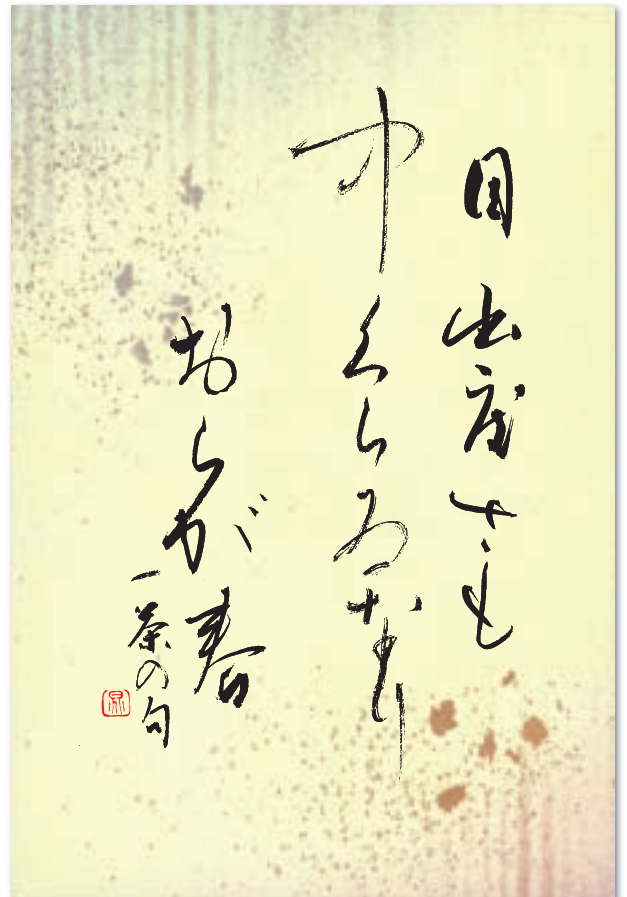 目出度さも
中くらゐなり
おらが春
一茶の句